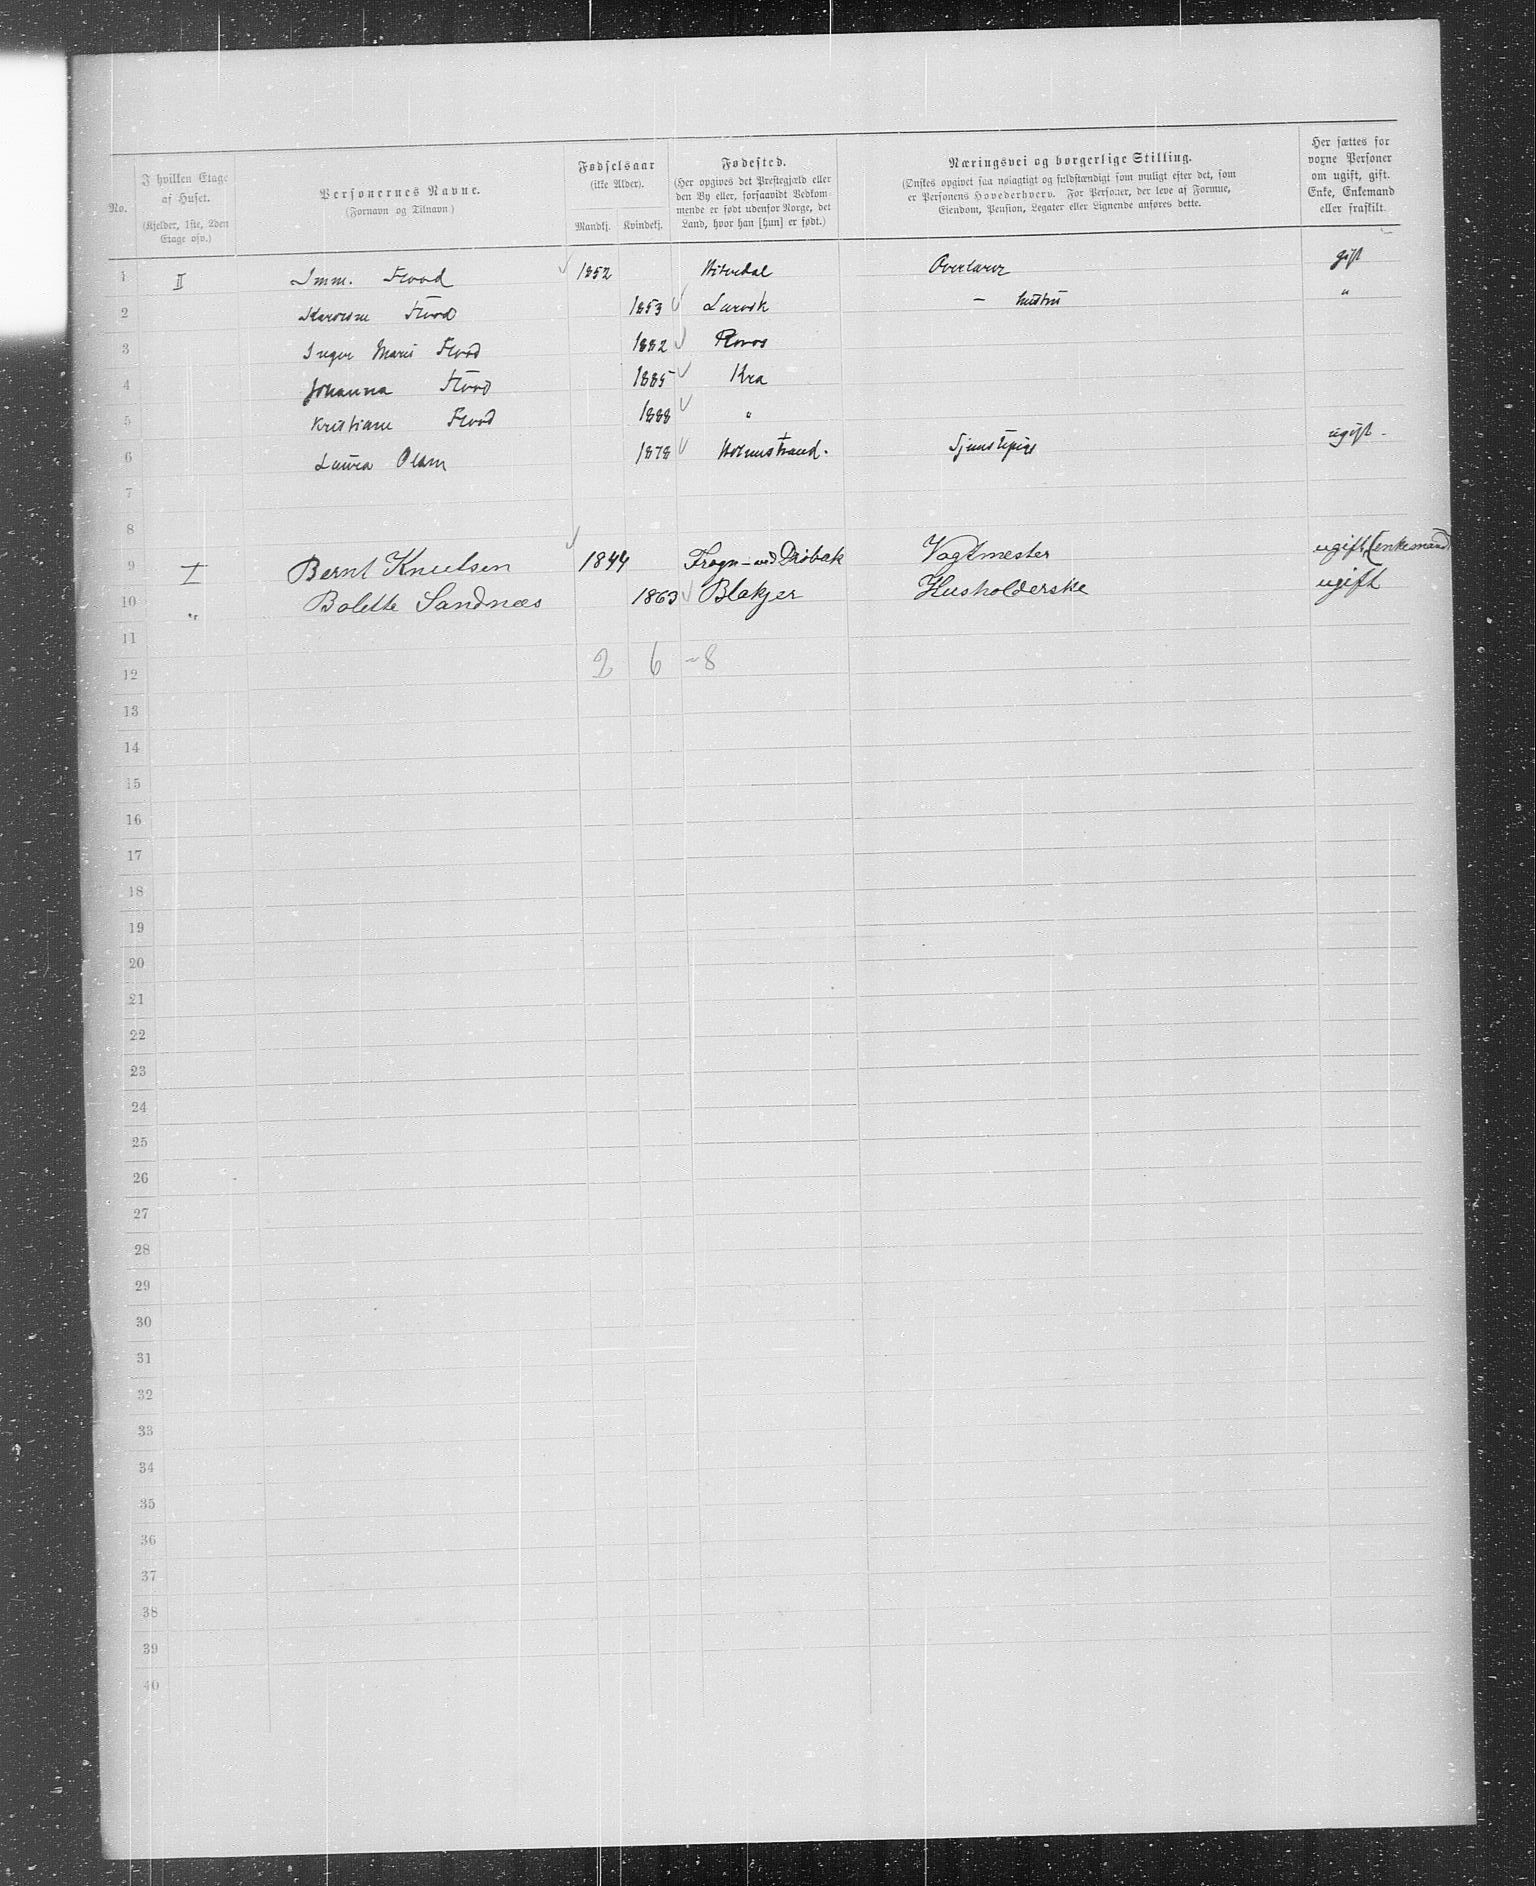 No. | I hvilken Etage af Huset. (Kjelder, 1ste, 2den Etage osv.) | Personernes Navne. (Fornavn og Tilnavn) | Fødselsaar (ikke Alder). Mandkj. Kvindekj. | Fødested. (Her opgives det Prestegjæld eller den By eller, forsaavidt Vedkommende er født udenfor Norge, det Land, hvor han [hun] er født.) | Næringsvei og borgerlige Stilling. (Ønskes opgivet saa nøiagtigt og fuldstændigt som muligt efter det, som er Personens Hovederhverv. For Personer, der leve af Formue, Eiendom, Pension, Legater eller Lignende anføres dette. | Her sættes for voxne Personer om ugift, gift, Enke, Enkemand eller fraskilt
1 II Imm. Flood 1852 Hiterdal Overlærer gift
2 Flood 1853 Larvik – hustru "
3 Inger Marie Flood 1882 Røros
4 Johanna Flood 1885 Kra
5 Kristiane Flood 1888 "
6 Laura Olsen 1878 Holmestrand. Tjenestepige ugift.
7
8
9 I Bernt Knudsen 1844 Frogn – ved Drøbak Vagtmester ugift, (enkemand)
10 " Bolette Sandnæs 1863 Blakjer Husholderske ugift
11
12 2 6 – 8
13
14
15
16
17
18
19
20
21
22
23
24
25
26
27
28
29
30
31
32
33
34
35
36
37
38
39
40